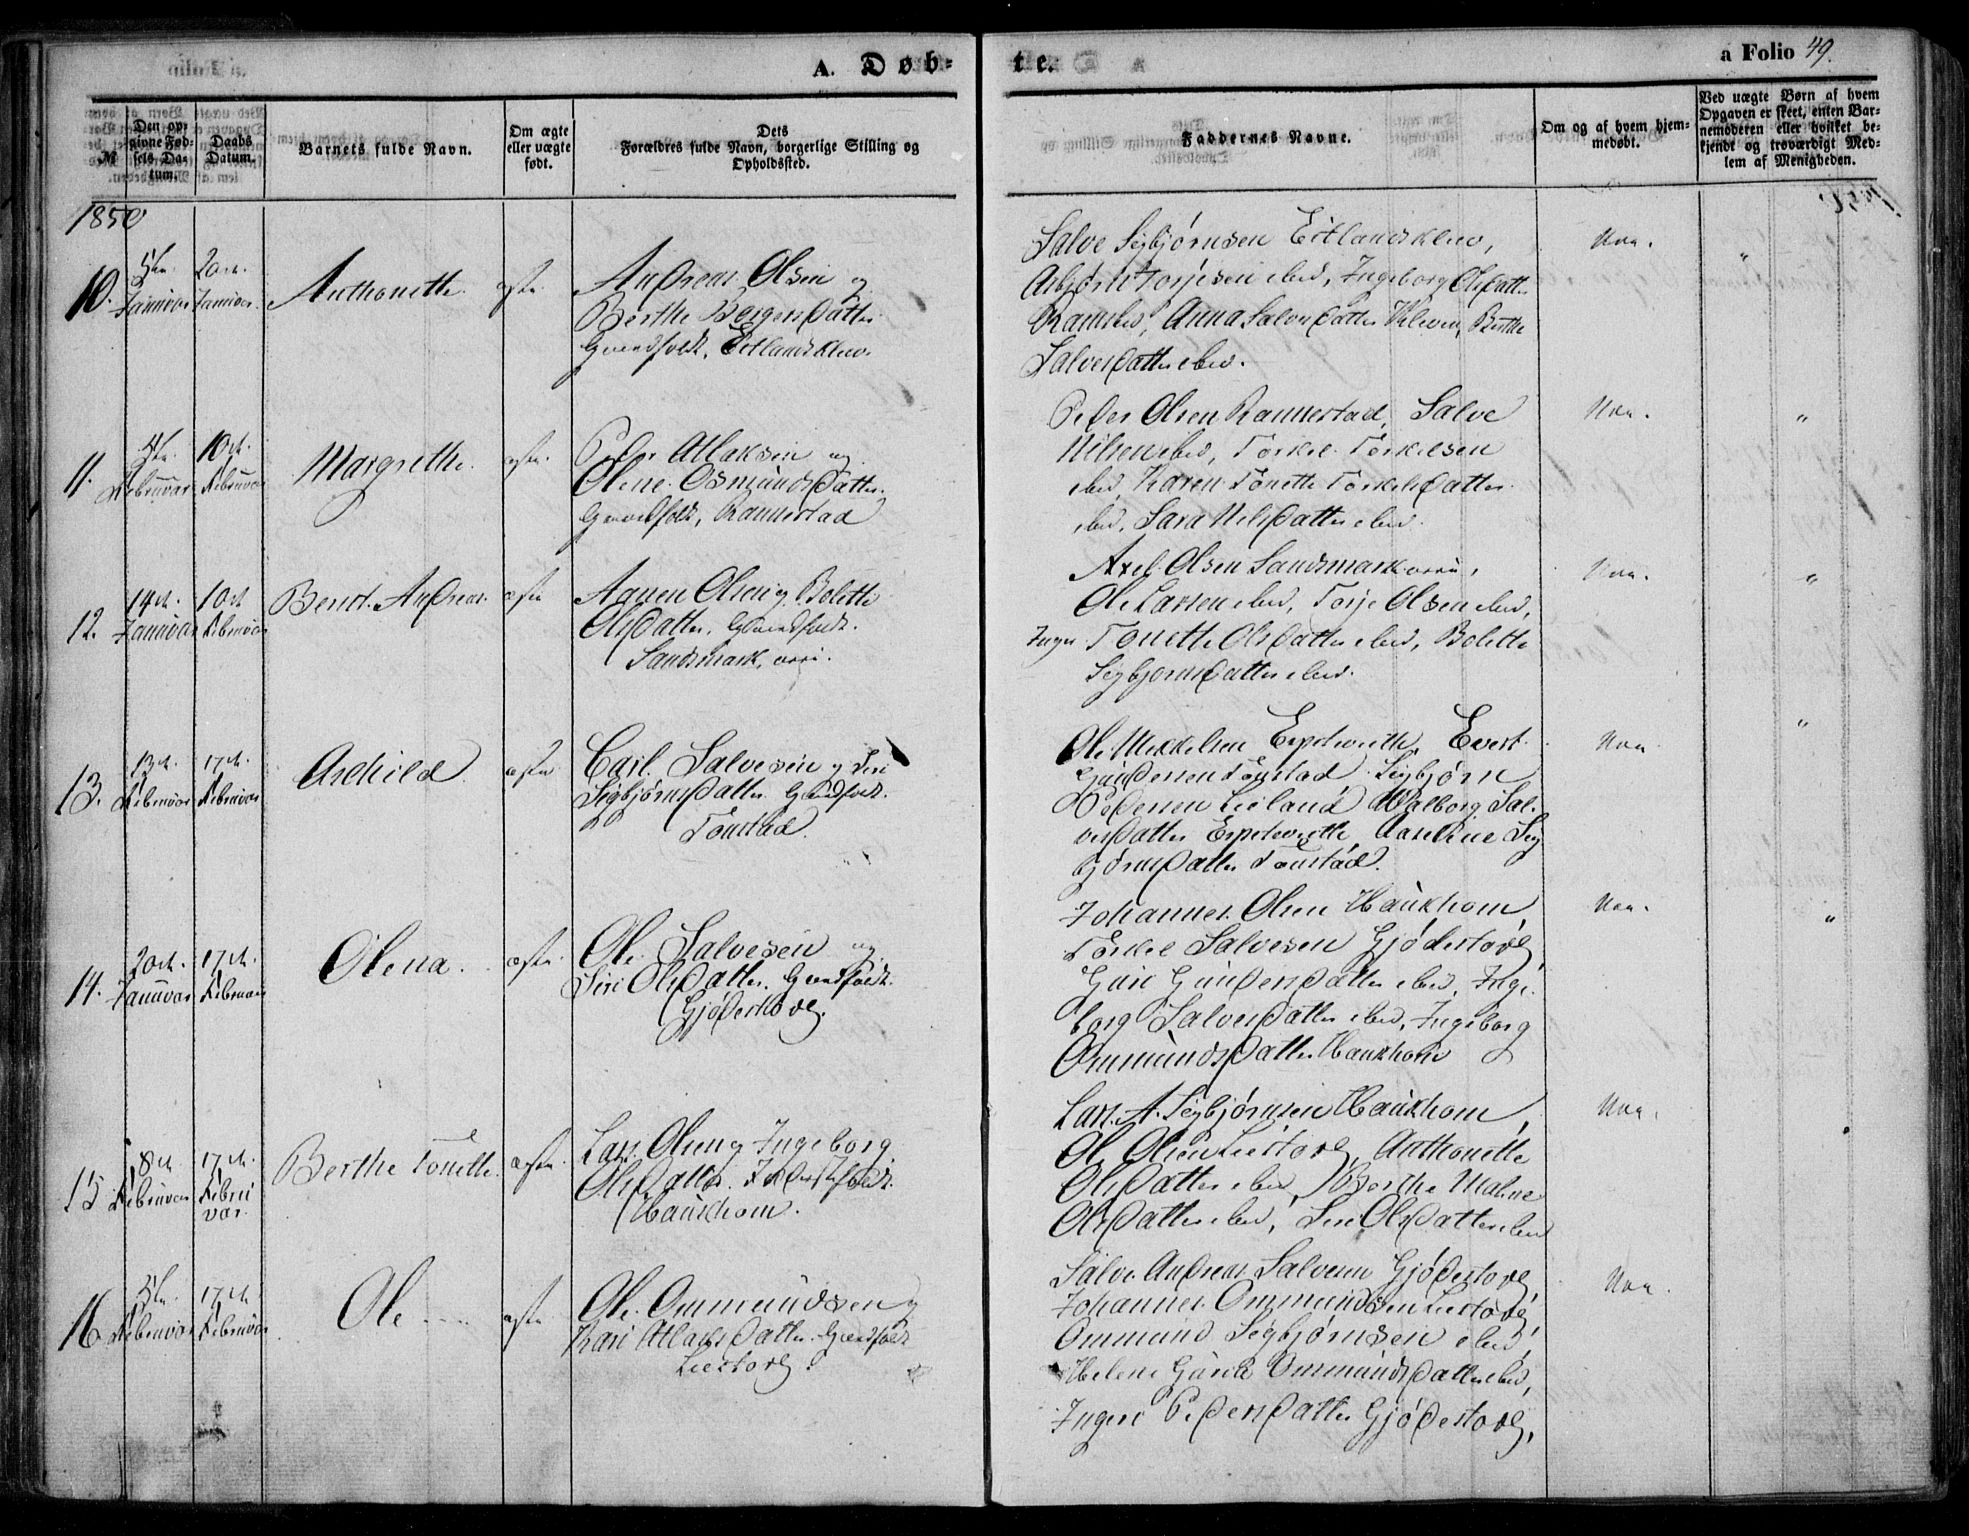 A. Døb-
te.
a Folio 49.
№
Den op-
givne Fød-
sels Da-
tum.
Daabs
Datum.
Barnets fulde Navn.
Om ægte
eller uægte
født.
Dets
Forældres fulde Navn, borgerlige Stilling og
Opholdssted.
Faddernes Navne.
Om og af hvem hjem-
medøbt.
Ved uægte Børn af hvem
Opgaven er skeet, enten Bar-
nemoderen eller hvilket be-
kjendt og troværdigt Med-
lem af Menigheden.
1850
10.
5te
Januar
20de
Januar
Anthonette
ægte
Andreas Olsen og
Berthe Bergersdatter
Gaardfolk, Eitlandsklev
Salve Sigbjørnsen Eitlandsklev,
Asbjørn Torjesen ibid, Ingeborg Olsdatter
Ramslid, Anna Salvesdatter Kleven, Berthe
Salvesdatter ibid.
"
11.
Februar
10de
Februar
Margrethe
ægte
Peder Atlaksen og
Olene Osmundsdatter
Gaardfolk, Rannestad
Peder Olsen Rannestad, Salve
Nilsen ibid, Torkel Torkelsen
ibid, Karen Tonette Torkelsdatter
ibid, Sara Nilsdatter ibid.
"
12.
14de
Januar
10de
Februar
Bent Andreas
ægte
Aanen Olsen og Bolette
Olsdatter. Gaardfolk.
Sandsmark, øvre.
Axel Olsen Sandsmark øvre,
Ole Larsen ibid, Torje Olsen ibid,
Inger Tonette Olsdatter ibid, Bolette
Sigbjørnsdatter ibid.
"
13.
13de
Februar
17de
Februar
Askild
ægte
Carl Salvesen og Siri
Sigbjørnsdatter Gaardfolk.
Tonstad.
Ole Mikkelsen Espetveith, Evert
Gundersen Tonstad, Sigbjørn
Pedersen Liland, Walborg Sal-
vesdatter Espetveith, Aaseline Sig
bjørnsdatter Tonstad.
"
14.
20de
Januar
17de
Februar
Olena.
ægte
Ole Salvesen og
Siri Olsdatter. Gaardfolk.
Gjødestøel.
Johannes Olsen Haukhom,
Torkel Salvesen Gjødestøel,
Guri Gundersdatter ibid, Inge-
borg Salvesdatter ibid, Ingeborg
Ommundsdatter Haukhom
"
15
8de
Februar
17de
Febru
var.
Berthe Tonette
ægte
Lars Olsen og Ingeborg
Olsdatter.
Haukhom.
Lars A. Sigbjørnsen Haukhom,
Ole Olsen Liestøel, Anthonette
Olsdatter ibid, Berthe Malene
Olsdatter ibid, Siri Olsdatter ibid
16
5te
Februar
17de
Februar
Ole
ægte
Ole Ommundsen og
Kari Atlaksdatter. Gaardfolk
Liestøel.
Salve Andreas Salvesen Gjødestøel,
Johannes Ommundsen Liestøel,
Ommund Sigbjørnsen ibid,
Helene Gurie Ommundsdatter ibid,
Ingeri Pedersdatter Gjødestøel,